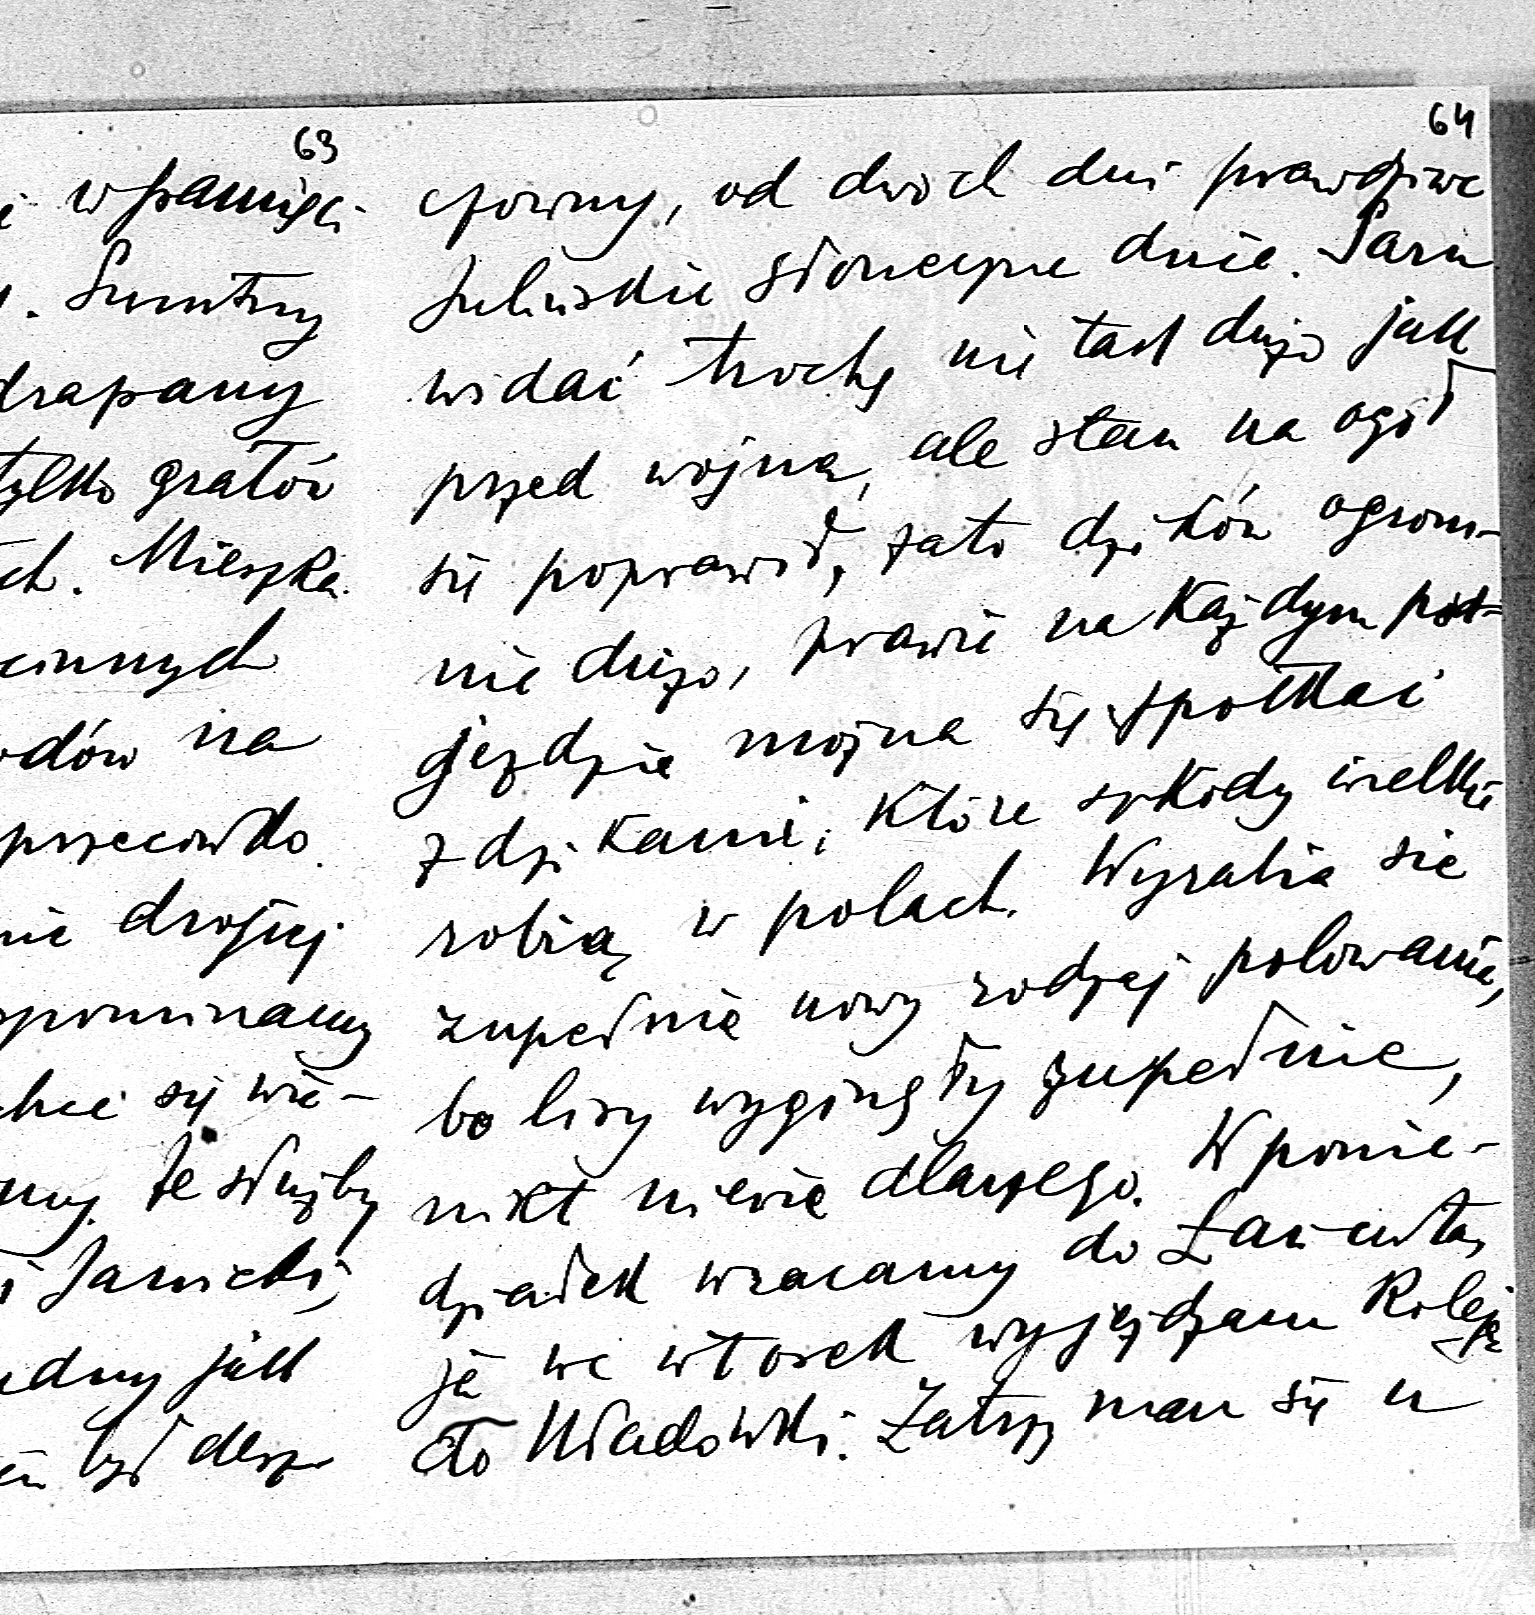 63
w pamięci
. Smutny
drapany
tylko gratów
ch. Mieszka
innych
odów na
przeciwko.
nie drożej
spominamy
chce się wie-
my. Ze służby
i Jarnicki,
adny jak
był deszcz
64
czowny, od dwóch dni prawdziwe
Juliuskie słoneczne dnie. Sarn
widać trochę nie tak dużo jak
przed wojną, ale stan na ogół
się poprawił, zato dzików ogrom-
nie dużo, prawie na każdym pod-
jeździe można się spotkać
z dzikami, które szkody wielkie
robią w polach. Wyrabia się
zupełnie nowy rodzaj polowania,
bo lisy wyginęły zupełnie,
nikt niewie dlaczego. W ponie-
działek wracamy do Łańcuta,
ja we wtorek wyjeżdzam Koleją
do Władówki. Zatrzymam się u